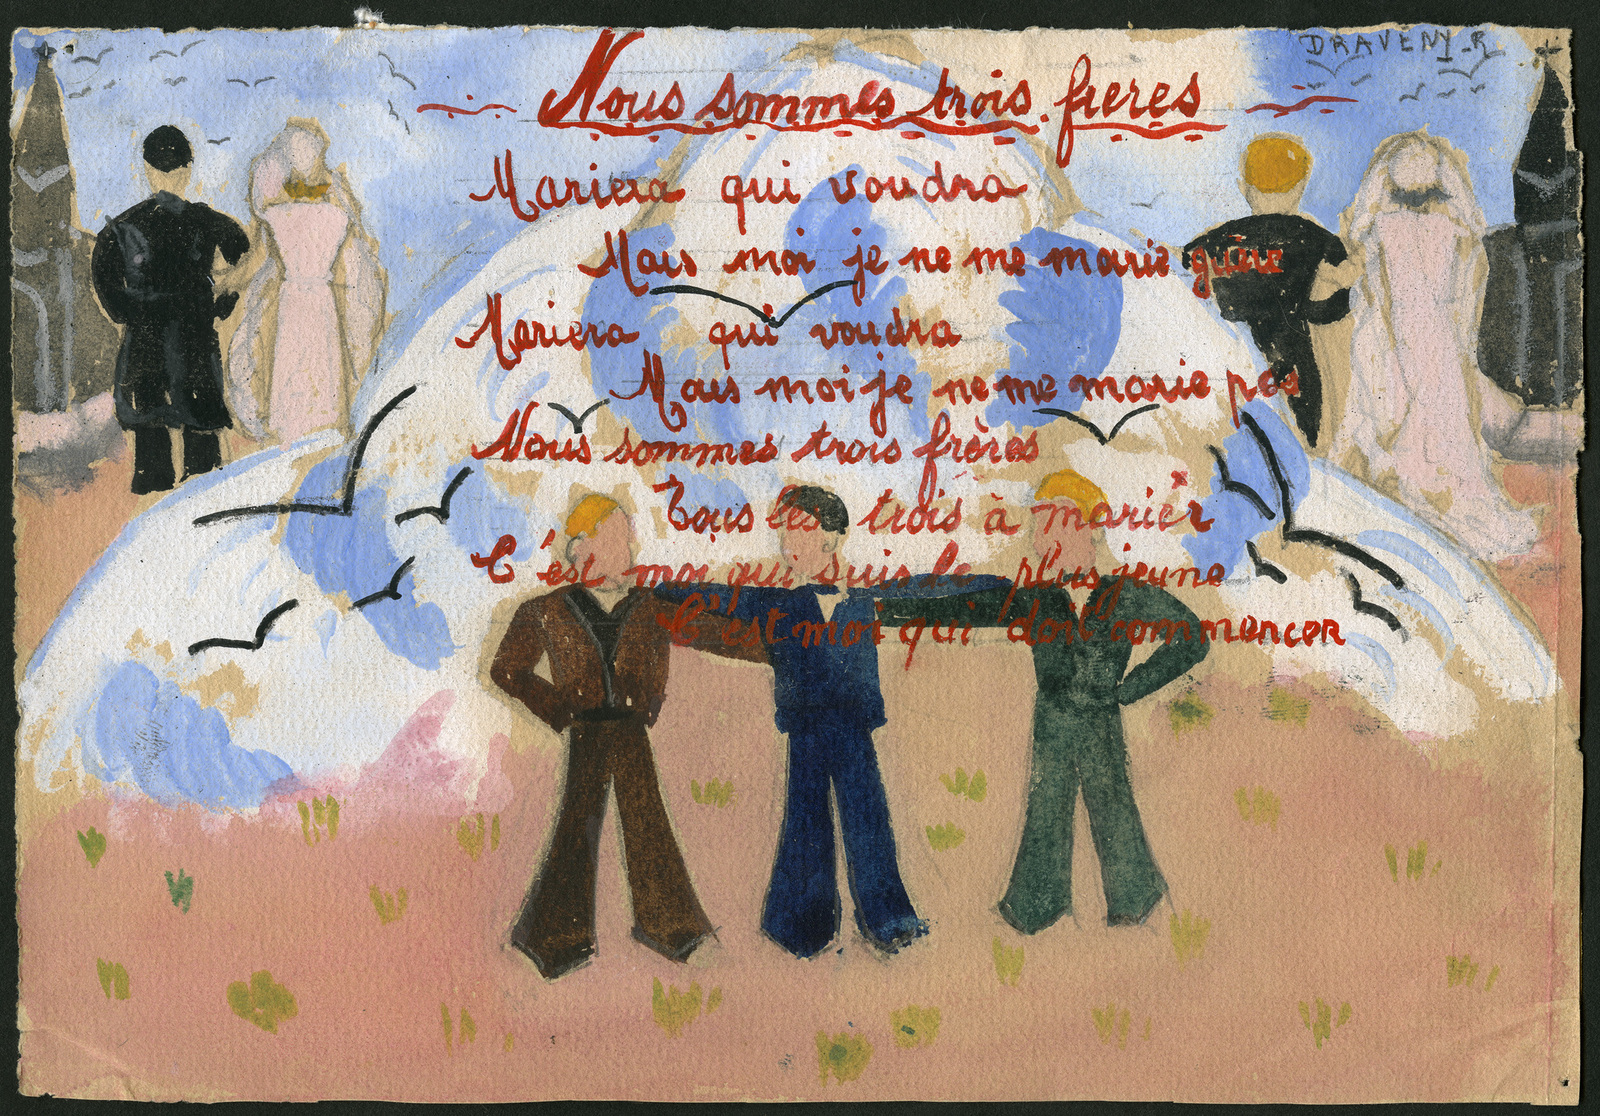 DRAVENY-R
Nous sommes trois freres
Mariera qui voudra
Mais moi je ne me marie guère
Mariera qui voudra
Mais moi je ne me marie pas
Nous sommes trois frères
Tous les trois à marier
C'est moi qui suis le plus jeune
C'est moi qui doit commencer